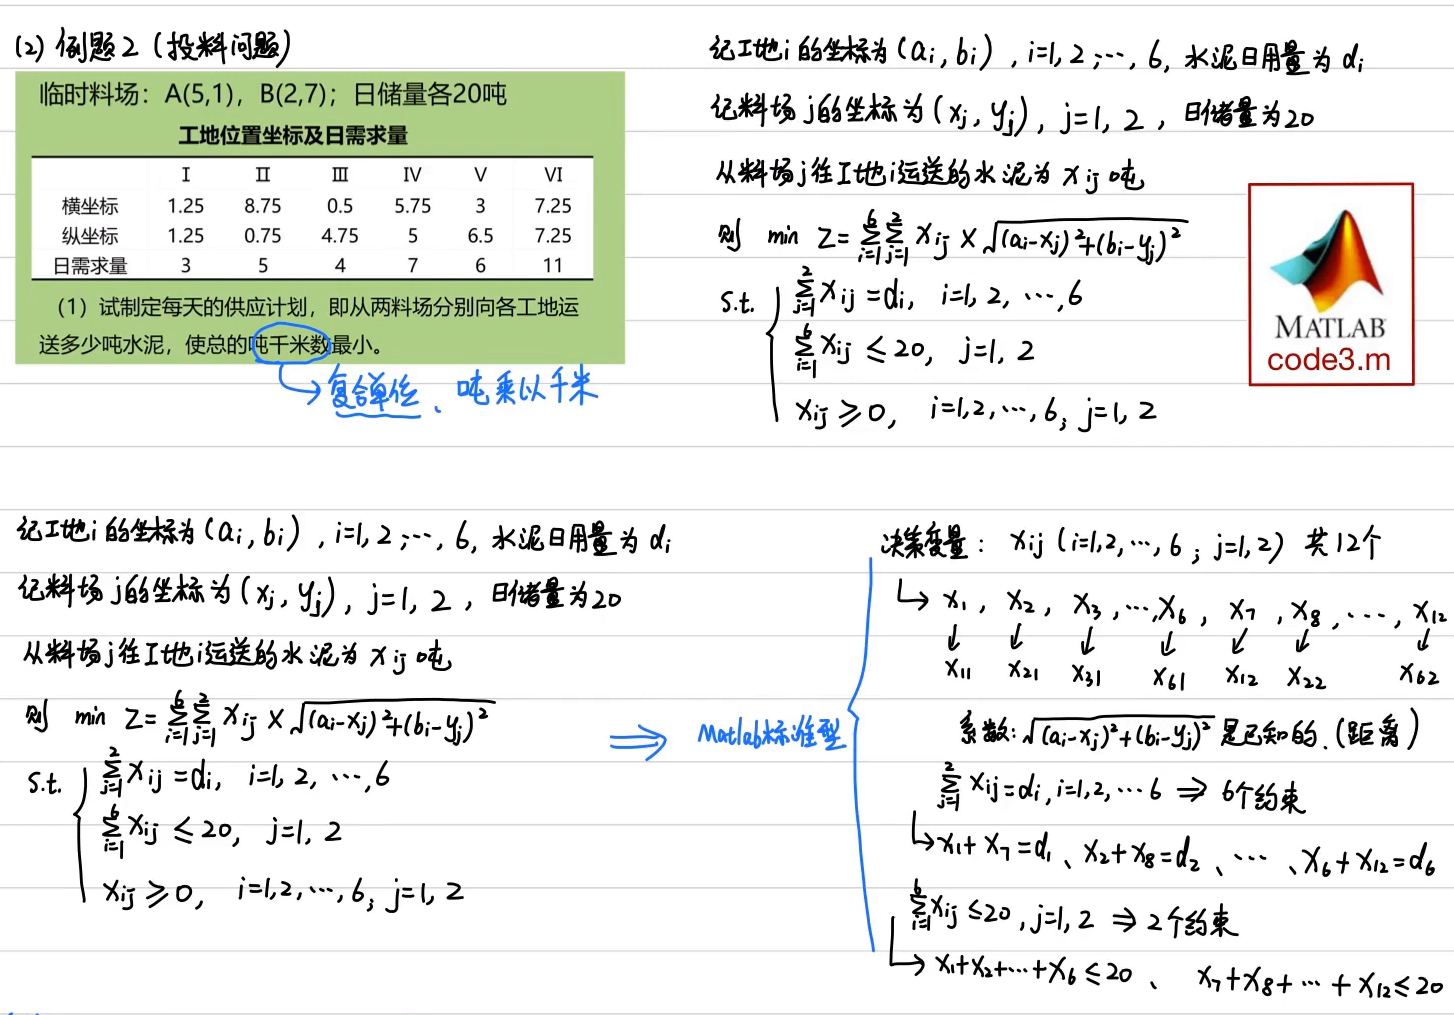 (2) 例题2 (投料问题)
临时料场：A(5,1)，B(2,7)；日储量各20吨
工地位置坐标及日需求量
I II III IV V VI
横坐标 1.25 8.75 0.5 5.75 3 7.25
纵坐标 1.25 0.75 4.75 5 6.5 7.25
日需求量 3 5 4 7 6 11
（1）试制定每天的供应计划，即从两料场分别向各工地运
送多少吨水泥，使总的吨千米数最小。
复合单位、吨乘以千米
记工地i的坐标为(ai, bi), i=1, 2, …, 6, 水泥日用量为di
记料场j的坐标为(xj, yj), j=1, 2, 日储量为20
从料场j往工地i运送的水泥为xij吨
则 min Z=∑(i=1→6)∑(j=1→2) xij × √((ai-xj)²+(bi-yj)²)
s.t. { ∑(j=1→2) xij = di, i=1, 2, …, 6
∑(i=1→6) xij ≤ 20, j=1, 2
xij ≥ 0, i=1,2,…,6; j=1, 2
MATLAB
code3.m
记工地i的坐标为(ai, bi), i=1, 2, …, 6, 水泥日用量为di
记料场j的坐标为(xj, yj), j=1, 2, 日储量为20
从料场j往工地i运送的水泥为xij吨
则 min Z=∑(i=1→6)∑(j=1→2) xij × √((ai-xj)²+(bi-yj)²)
s.t. { ∑(j=1→2) xij = di, i=1, 2, …, 6
∑(i=1→6) xij ≤ 20, j=1, 2
xij ≥ 0, i=1,2,…,6; j=1, 2
⇒ Matlab标准型
决策变量: xij (i=1,2,…,6; j=1,2) 共12个
↳ x1, x2, x3, …, x6, x7, x8, …, x12
↓ ↓ ↓ ↓ ↓ ↓ ↓
x11 x21 x31 x61 x12 x22 x62
系数: √((ai-xj)²+(bi-yj)²) 是已知的.(距离)
∑(j=1→2) xij=di, i=1,2,…6 ⇒ 6个约束
↳ x1+x7=d1、x2+x8=d2、…、x6+x12=d6
∑(i=1→6) xij≤20, j=1, 2 ⇒ 2个约束
↳ x1+x2+…+x6≤20、 x7+x8+…+x12≤20